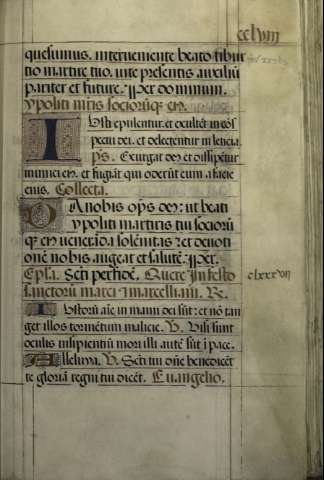 cclviii
quesumus. interueniente beato tibur
tio martire tuo. uite presentis auxiliū
pariter et future. Per dominum.
ypoliti mris sociorūqꝫ eiꝰ.
Iusti epulentur. et exultēt in cōs
pectu dei. et delectentur in leticia.
pˢ. Exurgat deꝰ et dissipētur
inimici eiꝰ. et fugiāt qui oderūt eum a facie
eius. Collecta.
Da nobis ops deꝰ: ut beati
ypoliti martiris tui sociorū
qꝫ eiꝰ ueneranda solēnitas: et deuoti
onē nobis augeat et salutē. Per.
Epła. Scti per fidē. Quere in festo clxxxvii
sanctorū marci et marcelliani. R.
Iustorū aīe in manu dei sūt: et nō tan
get illos tormētum malicie. V. Uisi sunt
oculis insipientiū mori illi autē sūt ī pace.
Alleluya. V. Scti tui dn̄e benedicēt
te gloriā regni tui dicēt. Euangelio.